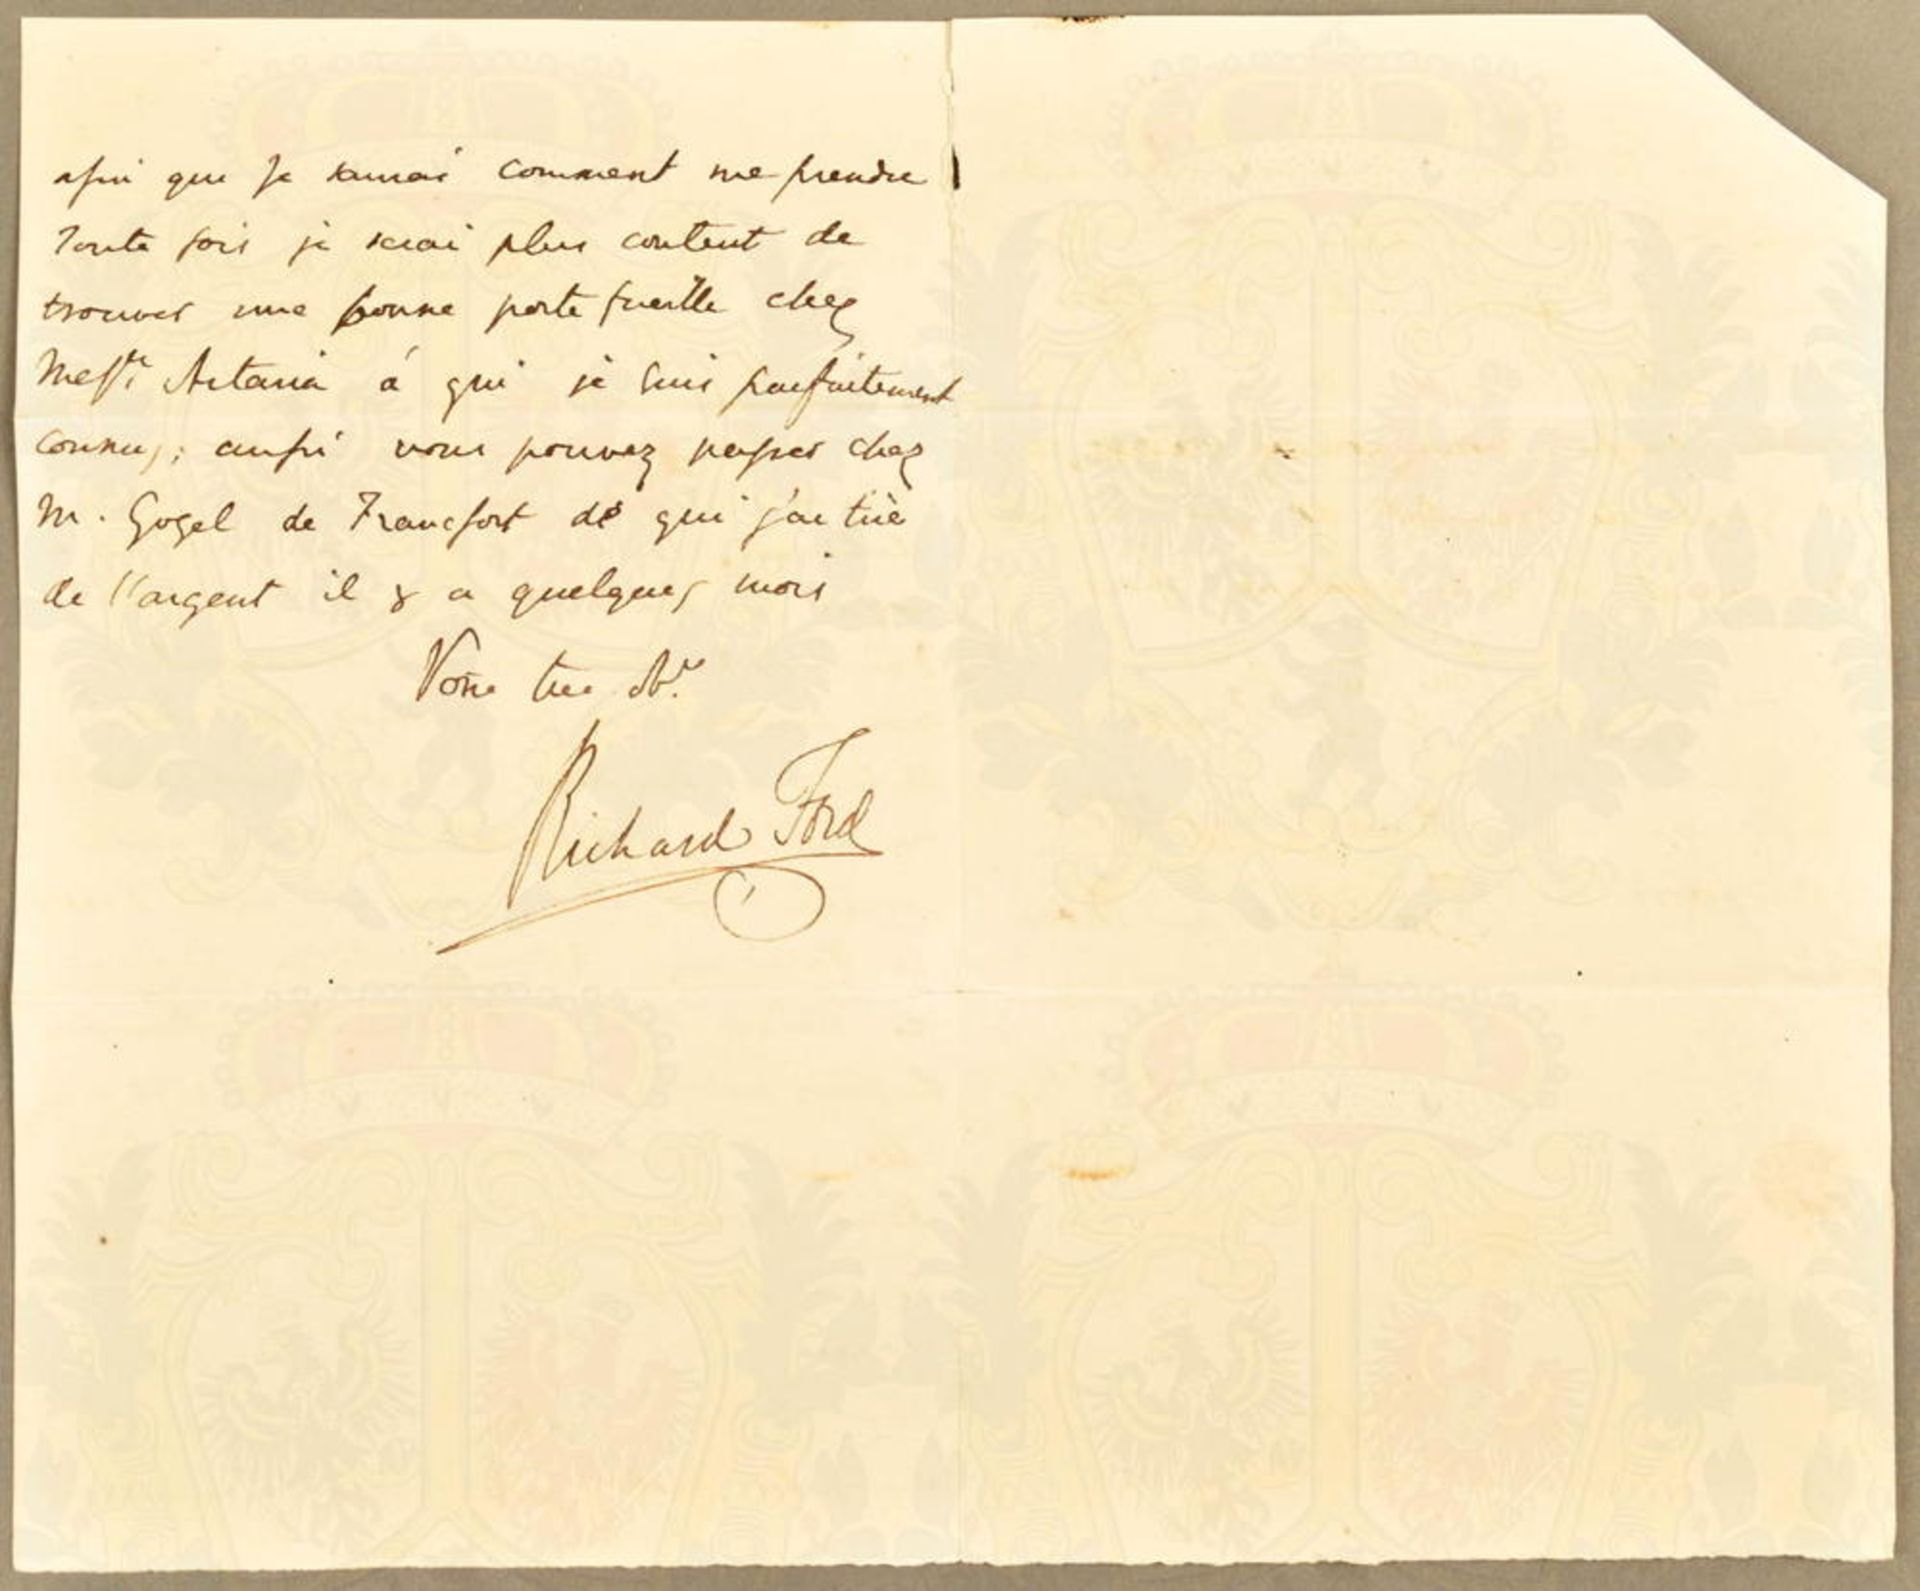 afin que Je saurai comment me prendre
Toute fois je serai plus content de
trouver une bonne porte fueille chez
Messrs Artaria á qui je suis parfaitement
connu,; aussi vous pouvez passer chez
M. Gogel de Francfort de qui j'ai tiré
de l'argent il y a quelques mois
Votre tres obt.
Richard Ford